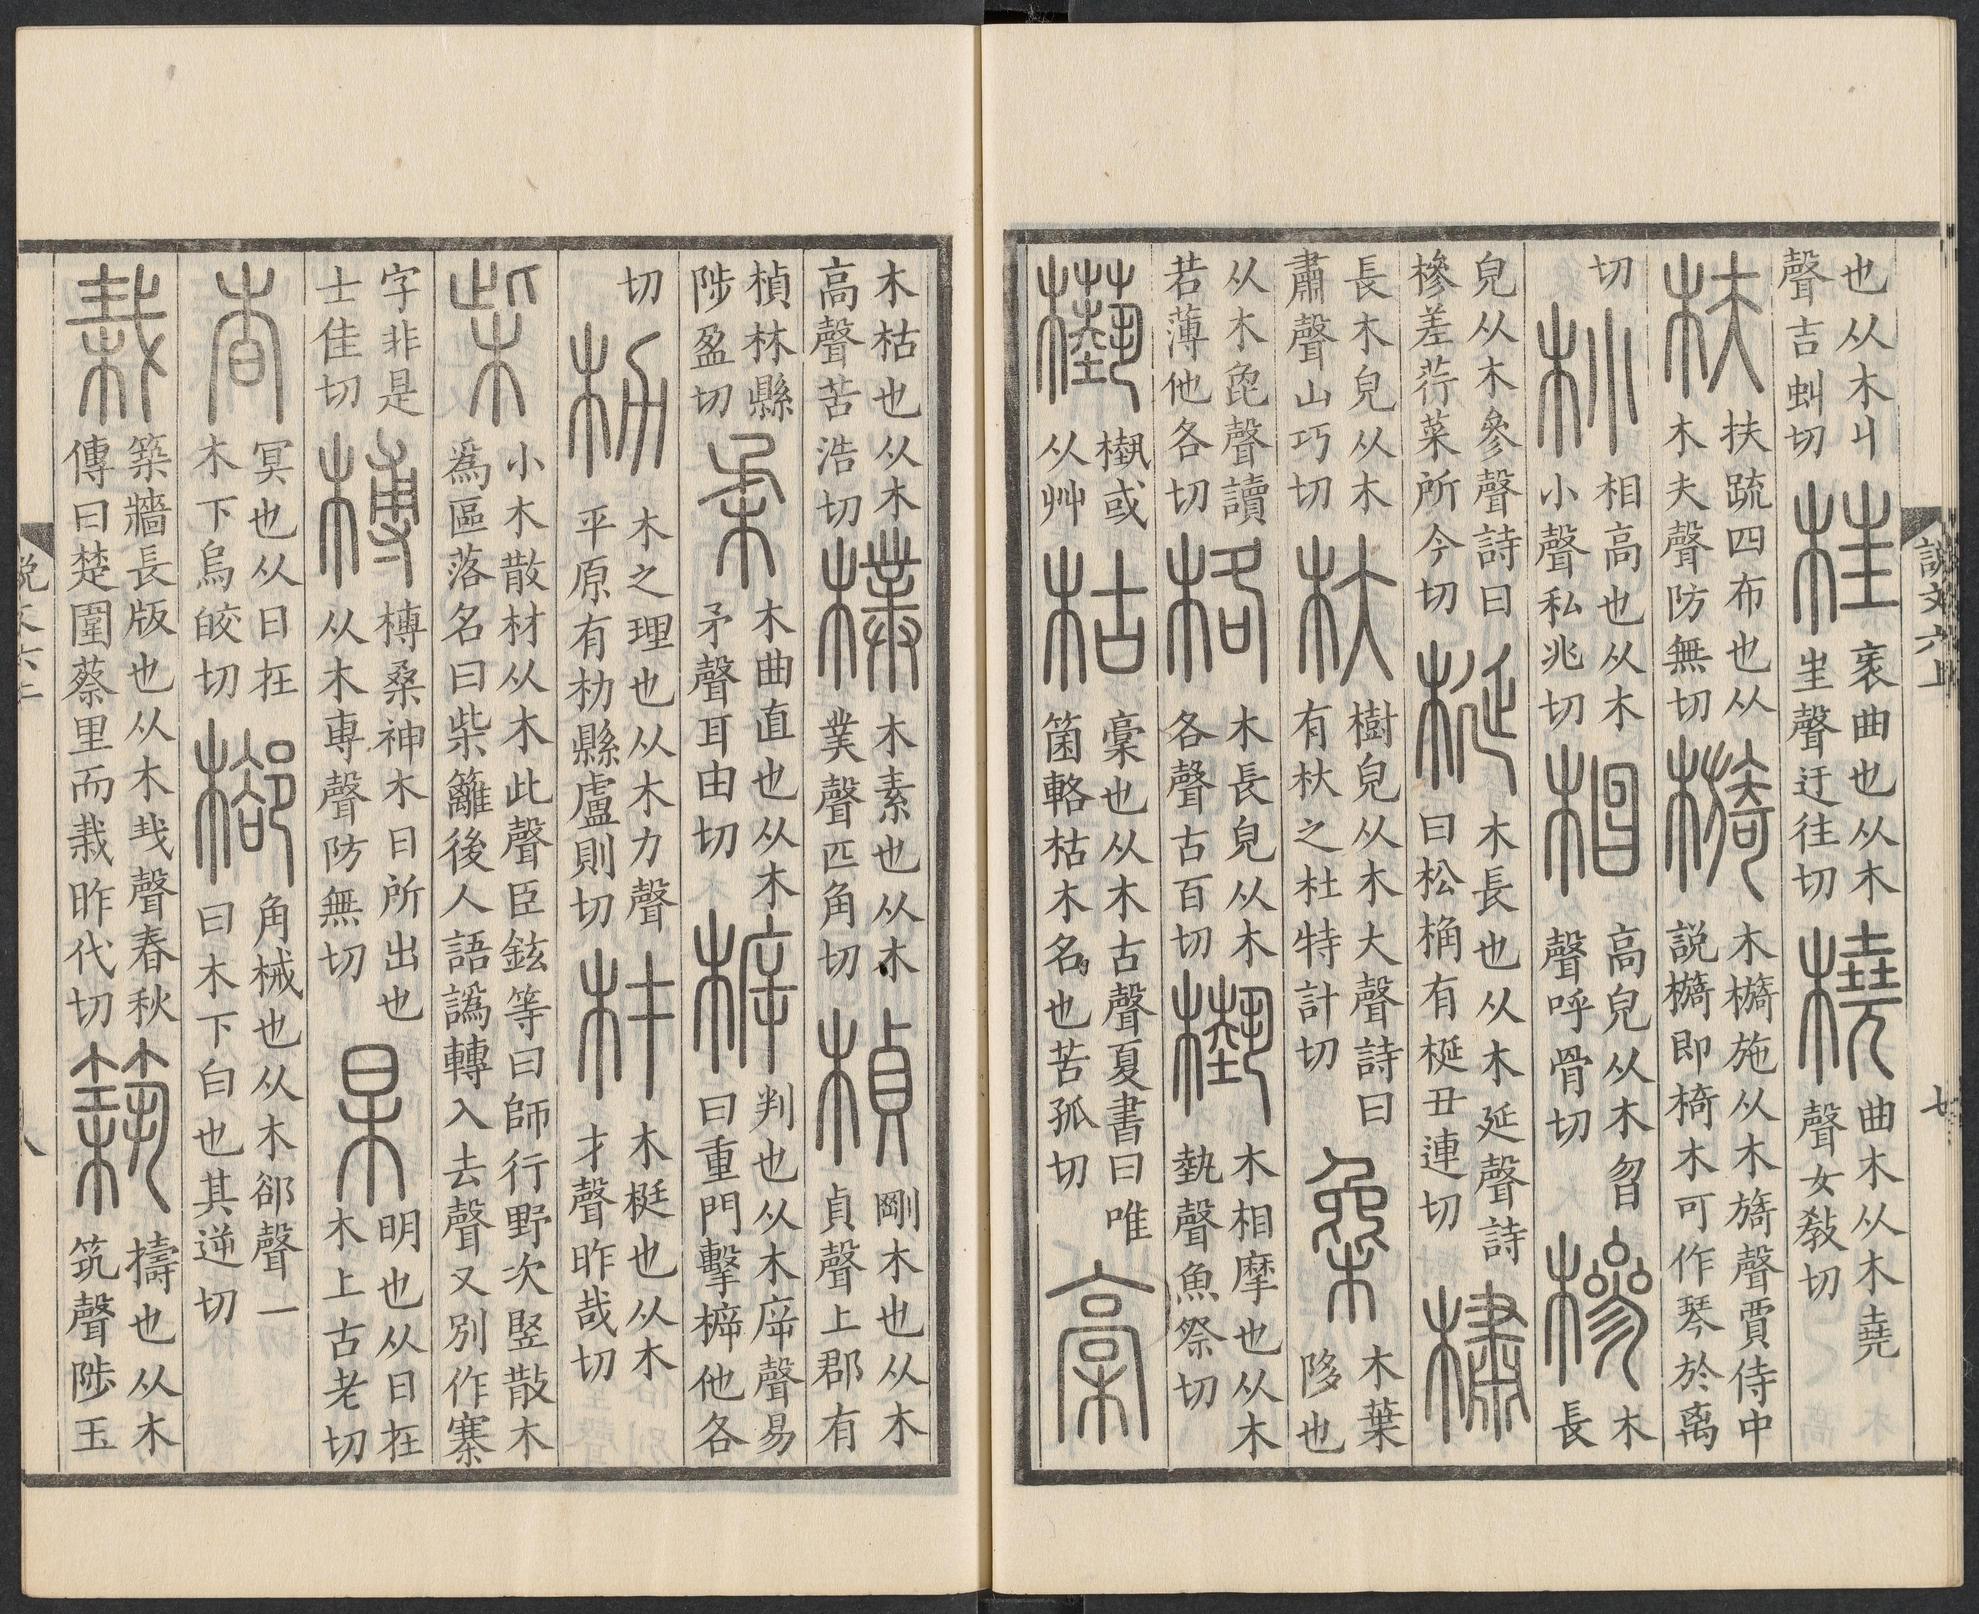 說文六上　七
也从木丩聲吉虯切枉衺曲也从木㞷聲迂往切橈曲木从木堯聲女敎切
枎扶疏四布也从木夫聲防無切檹木檹施从木旖聲賈侍中說檹即椅木可作琴於离
切𣏂相高也从木小聲私兆切㮯高皃从木曶聲呼骨切槮木長
皃从木參聲詩曰槮差荇菜所今切梴木長也从木延聲詩曰松桷有梴丑連切橚
長木皃从木肅聲山巧切杕樹皃从木大聲詩曰有杕之杜特計切𣠄木葉陊也
从木㲋聲讀若薄他各切格木長皃从木各聲古百切槸木相摩也从木埶聲魚祭切
槷槸或从艸枯槀也从木古聲夏書曰唯箘輅枯木名也苦孤切槀
木枯也从木高聲苦浩切樸木素也从木菐聲匹角切楨剛木也从木貞聲上郡有
楨林縣陟盈切柔木曲直也从木矛聲耳由切㯓判也从木㡿聲易曰重門擊㯓他各
切朸木之理也从木力聲平原有朸縣盧則切材木梃也从木才聲昨哉切
柴小木散材从木此聲臣鉉等曰師行野次竪散木爲區落名曰柴籬後人語譌轉入去聲又別作寨
字非是士佳切榑榑桑神木日所出也从木尃聲防無切杲明也从日在木上古老切
杳冥也从日在木下烏皎切㮝角械也从木郤聲一曰木下白也其逆切
栽築牆長版也从木𢦏聲春秋傳曰楚圍蔡里而栽昨代切築擣也从木筑聲陟玉
說文六上　八